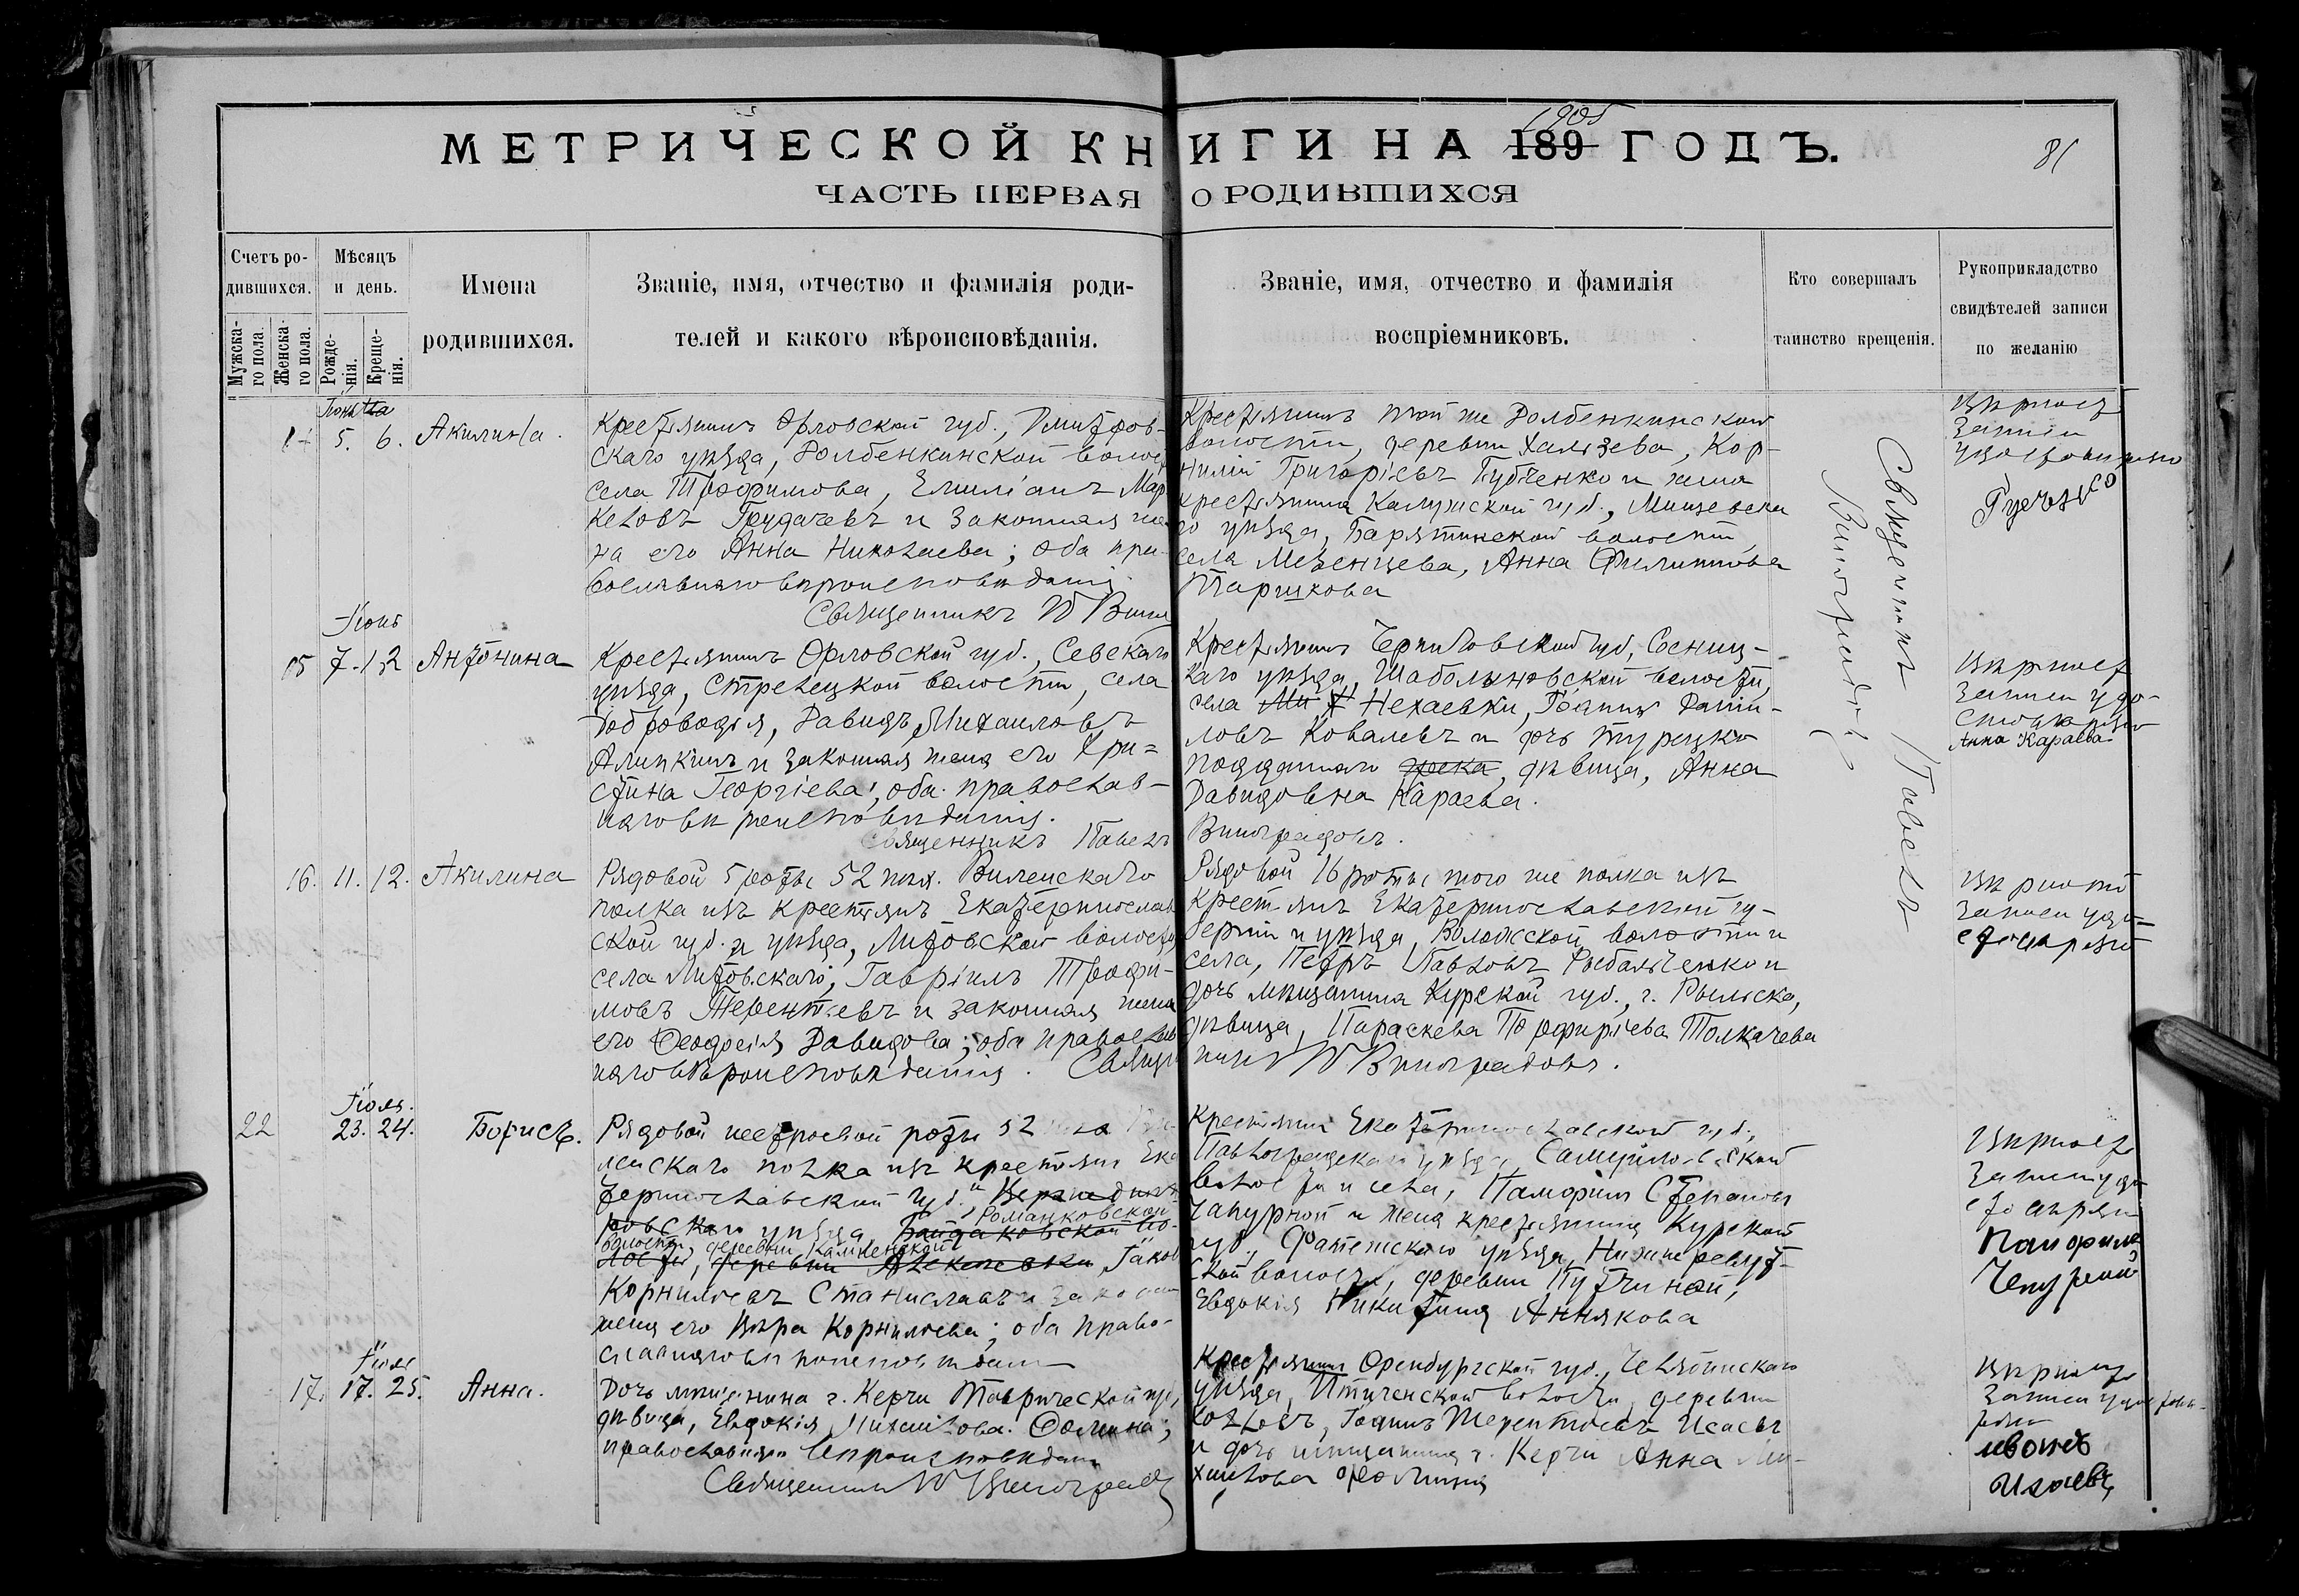 1905
МЕТРИЧЕСКОЙ КНИГИ НА 189 ГОДЪ.
81
ЧАСТЬ ПЕРВАЯ О РОДИВШИХСЯ
Счетъ родившихся.
Мужскаго пола.
Женскаго пола.
Мѣсяцъ и день.
Рожденія.
Крещенія.
Имена родившихся.
Званіе, имя, отчество и фамилія роди-
телей и какого вѣроисповѣданія.
Званіе, имя, отчество и фамилія
воспріемниковъ.
Кто совершалъ
таинство крещенія.
Рукоприкладство
свидѣтелей записи
по желанію
14 5. 6. Акилина.
Крестьянинъ Орловской губ., Дмитров-
скаго уѣзда, Долбенкинской волос
села Трофимова, Емиліанъ Мар
келовъ Грудачевъ и законная же
на его Анна Николаева; оба пра
вославнаго вѣроисповѣданія.
Священникъ П Вин
Крестьянинъ той же Долбенкинской
волости, деревни Хальзева, Кор-
нилій Григоріевъ Бубченко и жена
крестьянина Калужской губ., Мищевска
го уѣзда, Барятинской волости
села Мезенцева, Анна Филиппова
Таришкова
Вѣрность
записи
удостовѣряю
Священникъ Павелъ
Виноградовъ
Іюнь
15 7. 12 Антонина
Крестьянинъ Орловской губ., Севскаго
уѣзда, Стрелецкой волости, села
Доброводья, Давидъ Михаиловъ
Алипкинъ и законная жена его Хри=
стина Георгіева; оба православ-
наго вѣроисповѣданія.
Священникъ Павелъ
Крестьянинъ Черниговской губ., Сосниц-
каго уѣзда, Шаболиновской волости,
села Нехаевки, Іоаннъ Дани-
ловъ Ковалевъ и дочь турецко
подданнаго грека, дѣвица, Анна
Давидовна Караева.
Виноградовъ.
Вѣрность
записи удо-
стовѣряю
Анна Караева
16. 11. 12. Акилина
Рядовой 5 роты 52 пѣх. Виленскаго
полка изъ крестьянъ Екатеринослав
ской губ. и уѣзда, Литовской волости
села Литовскаго, Гавріилъ Трофи-
мовъ Терентьевъ и законная жена
его Феодосія Давидова; оба православ
наго вѣроисповѣданія. Священ
Рядовой 16 роты того же полка изъ
крестьянъ Екатеринославской гу-
берніи и уѣзда, Воложской волости и
села, Петръ Павловъ Рыбальченко и
дочь мѣщанина Курской губ., г. Рыльска,
дѣвица, Параскева Порфиріева Толкачева
никъ П Виноградовъ.
Вѣрность
записи удо-
стовѣряю
Іюль.
22 23. 24. Борисъ.
Рядовой нестроевой роты 52
ленскаго полка изъ крестьянъ Ека
теринославской губ.
ровскаго уѣзда, Романковской
волости, деревни Каменской, Іаковъ
Корниліевъ Станиславъ и законн
жена его Вѣра Корниліева; оба право-
славнаго вѣроисповѣданія
Крестьянинъ Екатеринославской губ.,
Павлоградскаго уѣзда, Самуйловской
волости и села, Памфилъ Степановъ
Чапурной и жена крестьянина Курской
губ., Фатежскаго уѣзда, Нижнереут-
ской волости, деревни Путчиной,
Евдокія Никитина Аннякова
Вѣрность
записи удо
стовѣряю
Памфилъ
Чепурной
Іюль
17. 17. 25. Анна.
Дочь мѣщанина г. Керчи Таврической губ.,
дѣвица, Евдокія Михаилова Фомина;
православнаго вѣроисповѣданія
Священникъ П Виноградовъ
Крестьянинъ Оренбургской губ., Челябинскаго
уѣзда, Птиченской волости, деревни
Козловъ, Іоаннъ Терентьевъ Исаевъ
и дочь мѣщанина г. Керчи Анна Ми-
хаилова Фомина
Вѣрность
записи удостовѣ-
ряю
Иванъ
Исаевъ